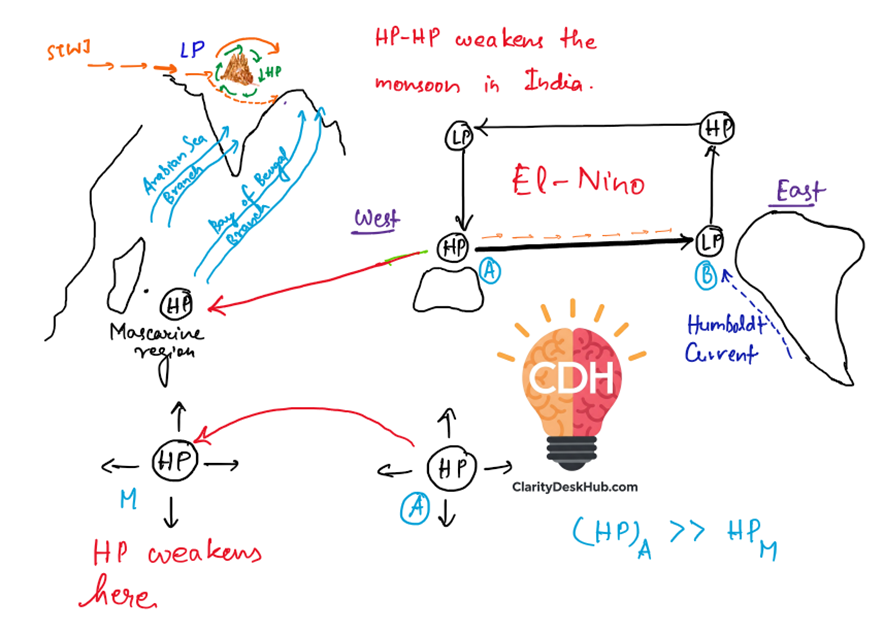 STWJ
LP
HP
HP-HP weakens the
monsoon in India.
Arabian Sea
Branch
Bay of Bengal
Branch
LP
HP
El-Nino
West
East
HP
LP
A
B
HP
Mascarine
region
Humboldt
Current
CDH
ClarityDeskHub.com
HP
M
HP weakens
here
HP
A
(HP)A >> HPM